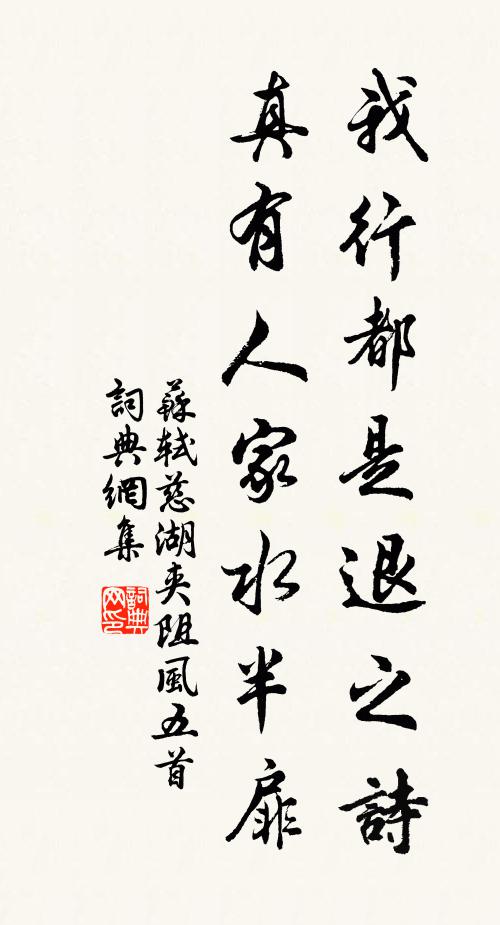 我行都是退之詩
真有人家水半扉
蘇軾慈湖夾阻風五首
詞典網集
詞典
网印